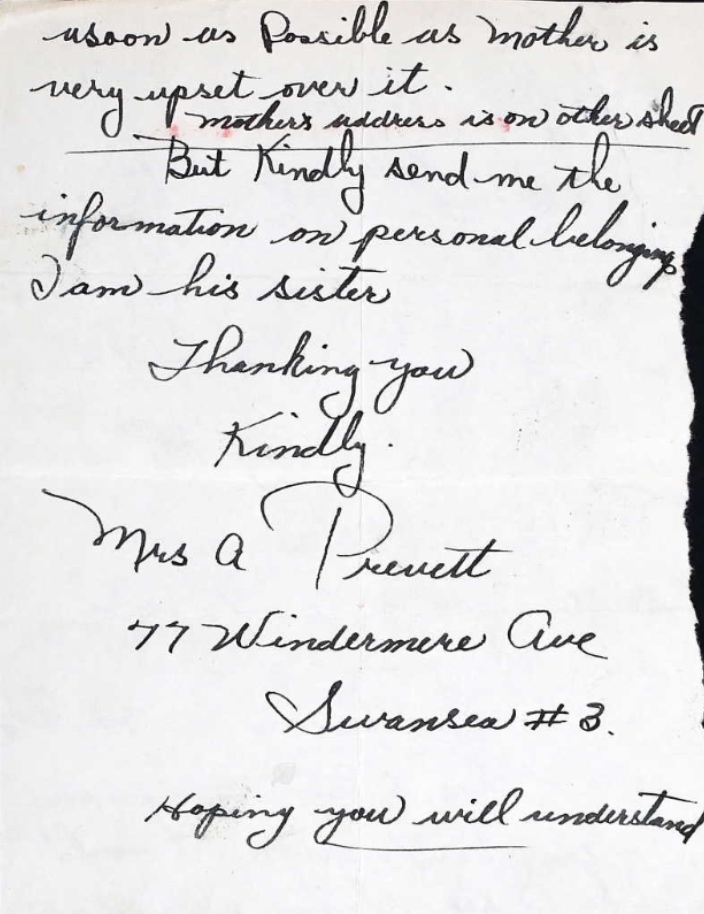 usoon as Possible as Mother is
very upset over it.
mother's address is on other sheet
But Kindly send me the
information on personal belongings
I am his sister
Thanking you
Kindly.
Mrs A Prevett
77 Windermere Ave
Swansea # 3.
Hoping you will understand